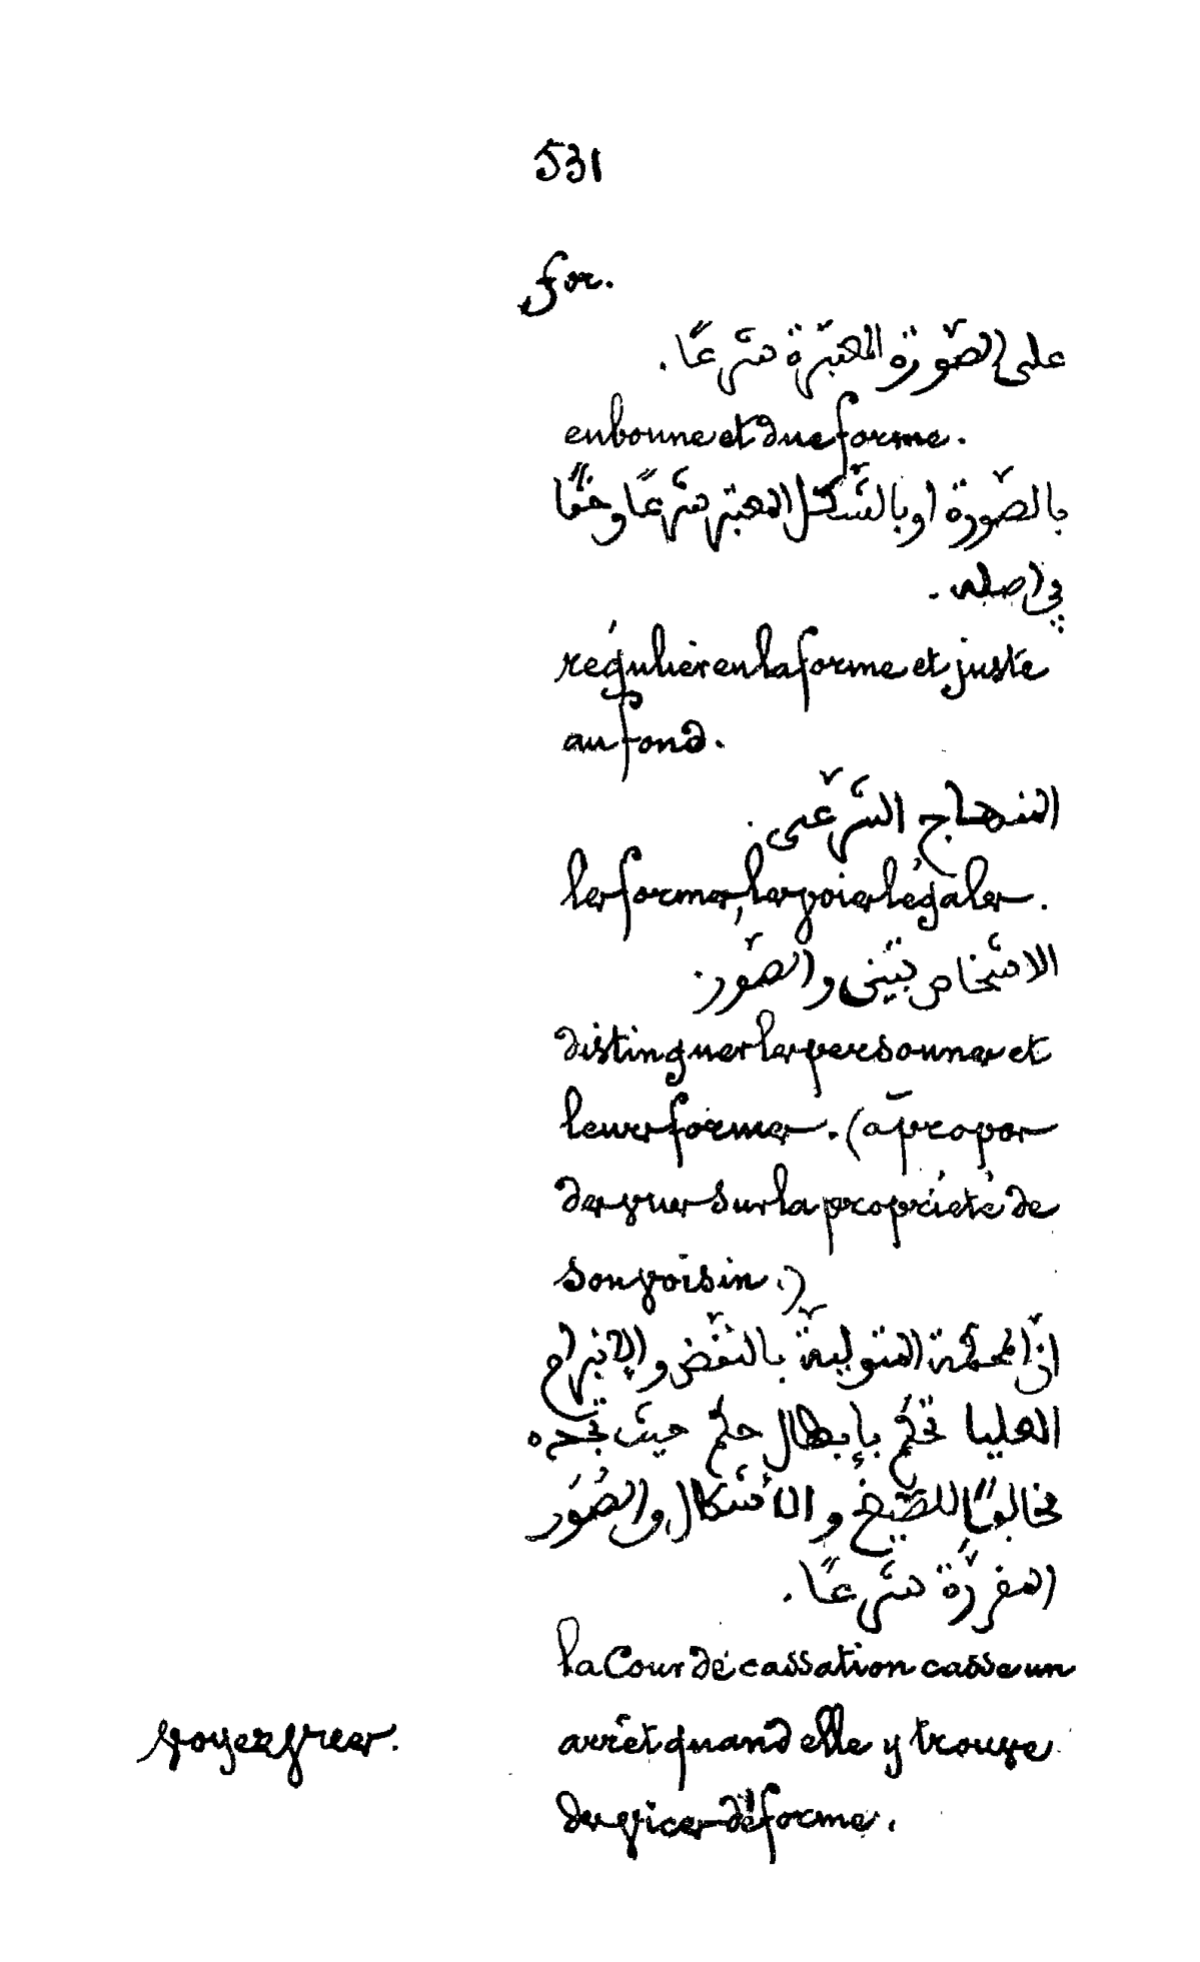 531
for.
على الصّورة المعتبرة شرعًا.
en bonne et due forme.
بالصّورة او بالشّكل المعتبر شرعًا وحقًّا
في اصله.
régulier en la forme et juste
au fond.
المنهاج الشّرعى.
les formes, les voies légales.
الاشخاص بيّنى والصّور.
distinguer les personnes et
leurs formes. (à propos
des vues sur la propriété de
son voisin.)
انّ المحكمة المتوليّة بالنّقض والابرام
العليا تحكم بإبطال حكم حيث تجده
مخالفًا للصّيغ والأشكال والصُوَر
المقرّرة شرعًا.
la Cour de cassation casse un
voyez vues.
arrêt quand elle y trouve
des vices de forme.